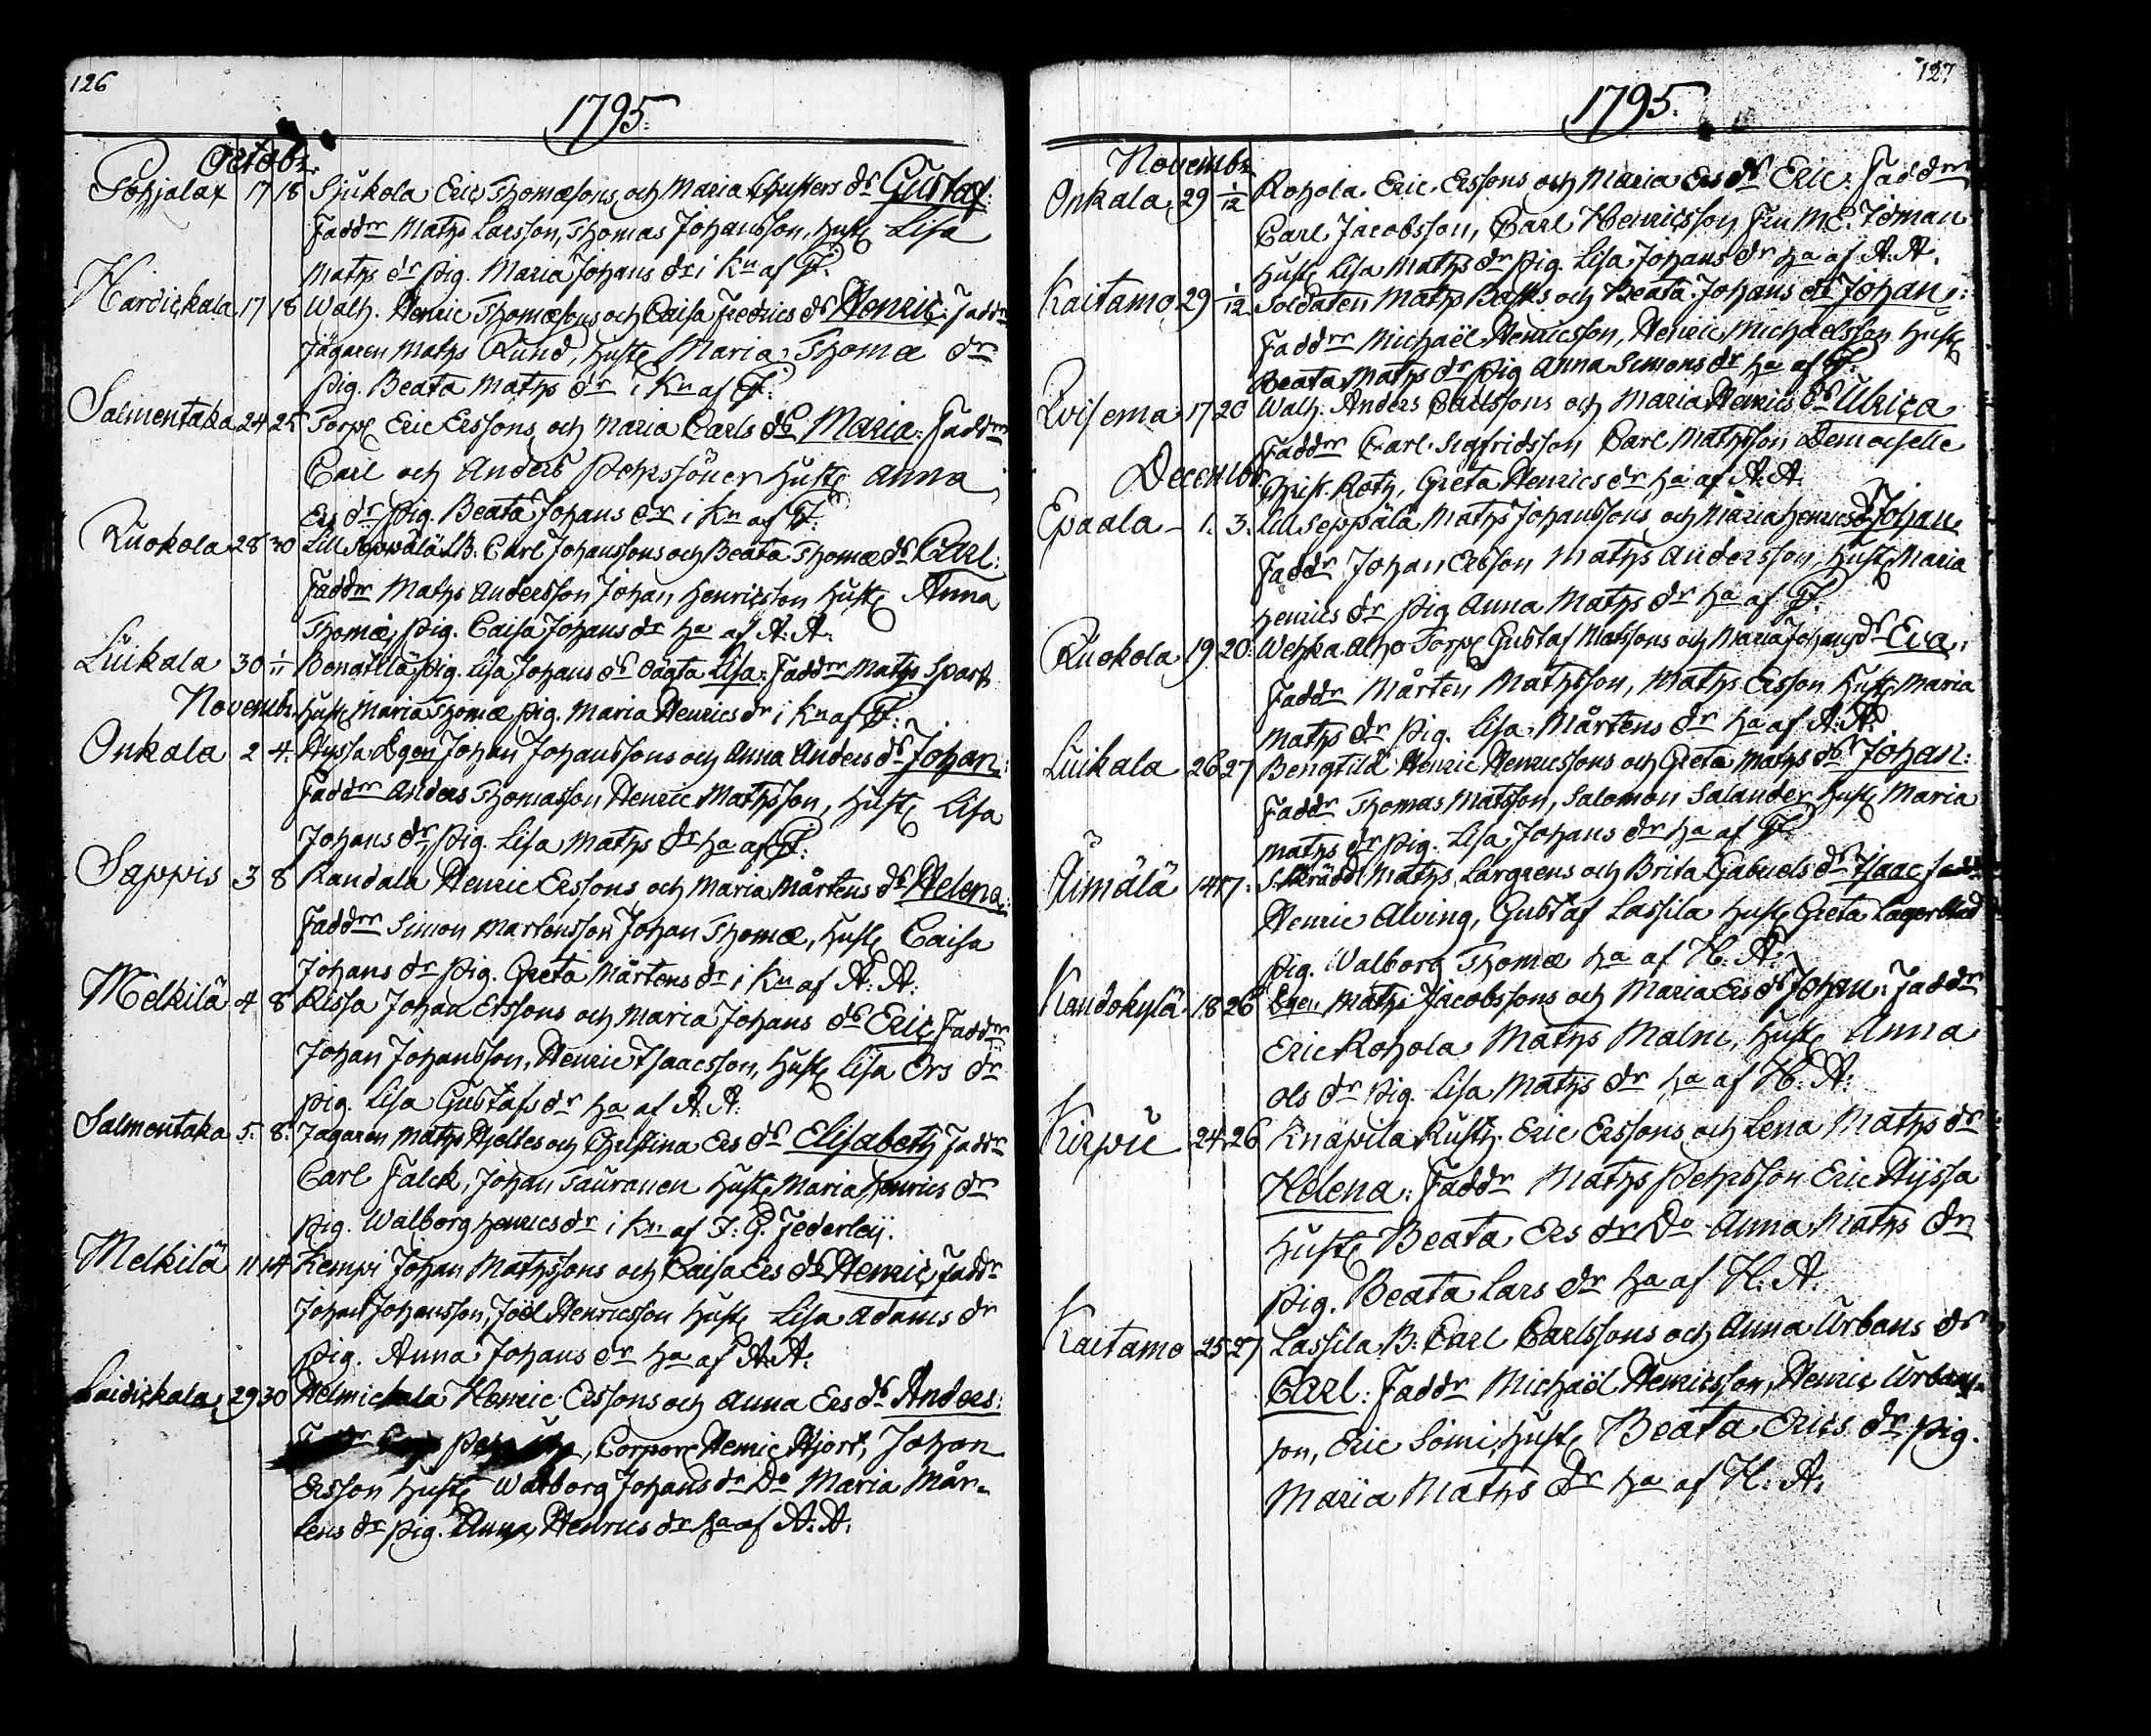 126
1795.
Octobr.
Pohjalax 17 18 Sjukola Eric Thomæsons och Maria Gustfers dr Gustaf:
Faddrr Maths Larsson, Thomas Johansson, Hust Lisa
Maths dr Pig. Maria Johans dr i Kn af F.
Hardickala 17 18 Walh. Henric Thomæsons och Caisa Fredrics dr Henric: Faddrr
Jägaren Maths Rund, Hust Maria Thomæ dr
Pig. Beata Maths dr i Kn af F.
Salmentaka 24 25 Torp Eric Erssons och Maria Carls dr Maria: Faddrr
Carl och Anders Pehrssöner Hust Anna
Ers dr Pig. Beata Johans dr i Kn af F.
Ruokola 28 30 Lill Seppälä B. Carl Johanssons och Beata Thomæ dr Carl:
Faddrr Maths Andersson Johan Henricsson Hust Anna
Thomæ, Pig. Caisa Johans dr ha af A. A.
Luikala 30 1/11 Pig. Lisa Johans dr oägta Lisa: Faddrr Maths Spark
Novembr. Hust Maria Thomæ, Pig. Maria Henrics dr i Kn af F.
Onkala 2 4. Hyssa Egon Johan Johanssons och Anna Anders dr Johan:
Faddrr Anders Thomasson Henric Mathsson, Hust Lisa
Johans dr, Pig. Lisa Maths dr ha af F:
Sappis 3 8 Randala Henric Erssons och Maria Mårtens dr Helena:
Faddrr Simon Martensson Johan Thomæ, Hust Caisa
Johans dr Pig. Greta Mårtens dr i Kn af A. A.
Melkilä 4 8 Rissa Johan Erssons och Maria Johans dr Eric Faddrr
Johan Johansson, Henric Isaacsson, Hust Lisa Ers dr
Pig. Lisa Gustafs dr ha af A. A.
Salmentaka 5. 8. Jägaren Maths Hjeltes och Christina Ers dr Elisabeth Faddr
Carl Falck, Johan Tauranen Hust Maria Henrics dr
Pig. Walborg Henrics dr i Kn af F. G. Federleij.
Melkilä 11 14 Kempi Johan Mathssons och Caisa Ers dr Henric, Faddr
Johan Johansson, Joël Henricsson Hust Lisa Adams dr
Pig. Anna Johans dr ha af A. A.
Laidickala 29 30 Helmickala Henric Erssons och Anna Ers dr Anders:
Corpor Henric Hjort, Johan
Ersson Hust Walborg Johans dr Do Maria Mår-
tens dr Pig. Anna Henrics dr ha af A. A.
127
1795.
Novembr
Onkala 29 1/12 Rohola Eric Erssons och Maria Ers dr Eric: Faddrr
Carl Jacobsson, Carl Henricsson Fru M. C. Idman
Hust Lisa Maths dr Pig. Lisa Johans dr ha af A. A.
Kaitamo 29 1/12 Soldaten Maths Basks och Beata Johans dr Johan:
Faddrr Michaël Henricsson, Henric Michaelsson Hust
Beata Maths dr Pig Anna Simons dr ha af F.
Kvisema 17 20 Walh. Anders Carlssons och Maria Henrics dr Ulrica
Faddrr Carl Sigfridsson Carl Mathsson Demoiselle
Decembr. Christ. Roth, Greta Henrics dr ha af A. A.
Epaala 1. 3. Lill Seppälä Maths Johanssons och Maria Henrics dr Johan
Faddr Johan Ersson Maths Andersson, Hust Maria
Henrics dr Pig Anna Maths dr ha af F.
Ruokola 19 20. Wehka Alho Torp Gustaf Matssons och Maria Johans dr Eva:
Faddr Mårten Mathsson, Maths Ersson Hust Maria
Maths dr Pig. Lisa Mårtens dr ha af A. A.
Luikala 26 27 Bengtilä Henric Henricssons och Greta Maths dr Johan:
Faddr Thomas Matsson, Salomon Salander Hust Maria
Maths dr Pig. Lisa Johans dr ha af F.
Äimälä 14 17. Skrädd. Maths Largrens och Brita Gabriels dr Isaac Faddr
Henric Alving, Gustaf Lassila Hust Greta Lagerblad
Pig. Walborg Thomæ ha af H. A.
Kandokylä 18 26 Maths Jacobssons och Maria Ers dr Johan: Faddr
Eric Rohola Maths Malm, Hust Anna
Ols dr Pig. Lisa Maths dr ha af H. A.
Kirpu 24 26 Knäpilä Rusth. Eric Erssons och Lena Maths dr
Helena: Faddr Maths Pehrsson Eric Hyssa
Hust Beata Ers dr Do Anna Maths dr
Pig. Beata Lars dr ha af H. A.
Kaitamo 25 27 Lassila B. Carl Carlssons och Anna Urbans dr
Carl: Faddr Michaël Henricsson, Henric Urbans-
son, Eric Somi, Hust Beata Erics dr Pig.
Maria Maths dr ha af H. A.